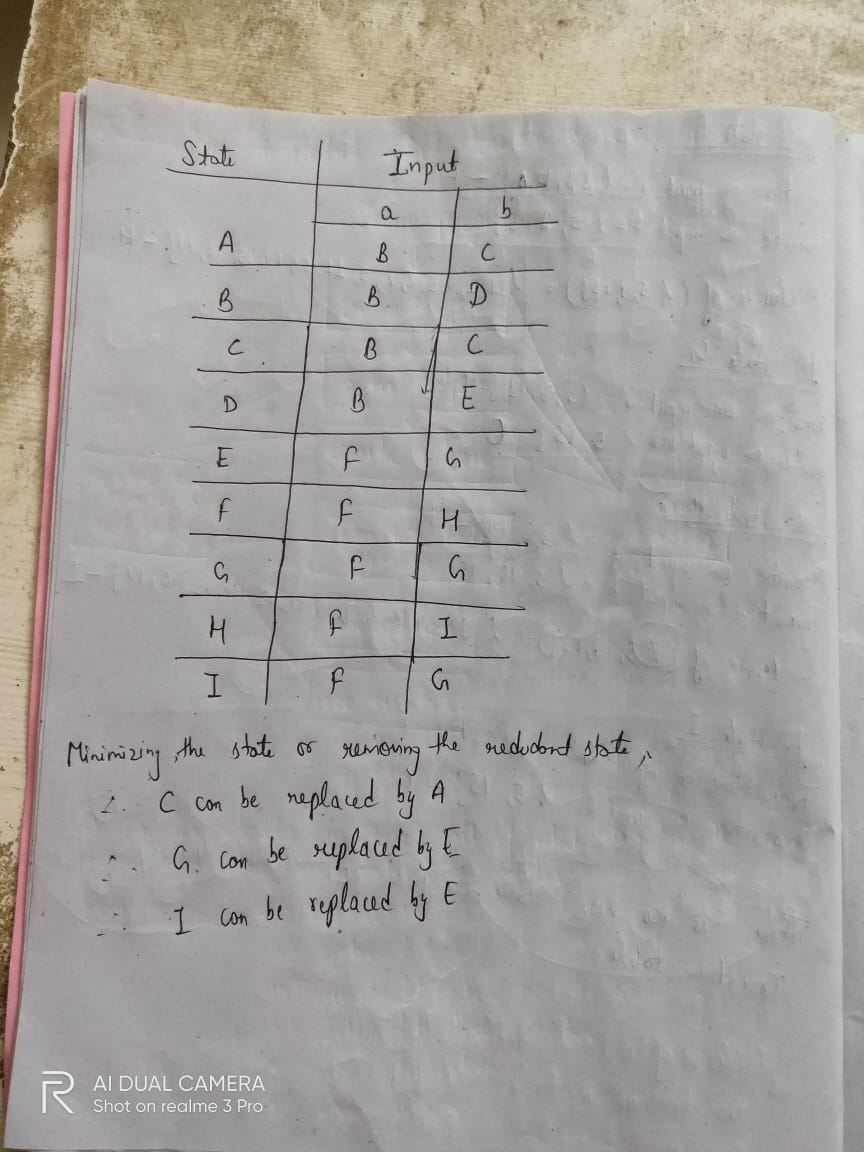 State Input
a b
A B C
B B D
C B C
D B E
E F G
F F H
G F G
H F I
I F G
Minimizing, the state or removing the redudant state,
∴ C can be replaced by A
∴ G. can be replaced by E
∴ I can be replaced by E
R AI DUAL CAMERA
Shot on realme 3 Pro